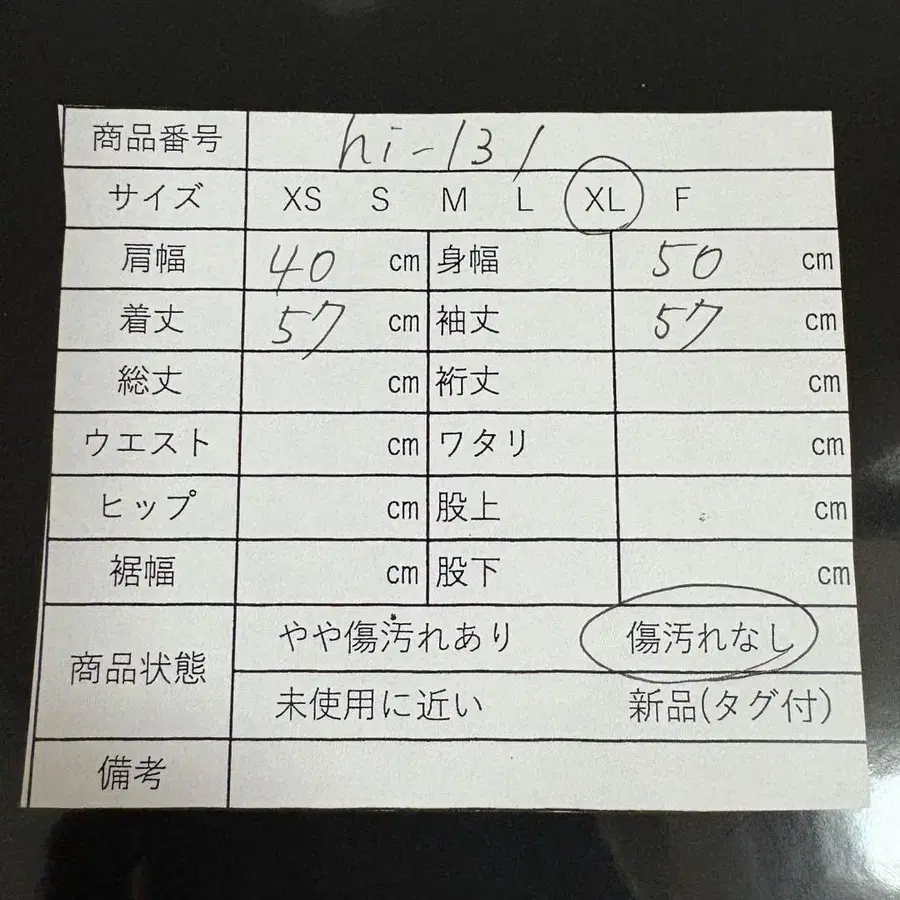 商品番号 hi-131
サイズ XS S M L XL F
肩幅 40 cm 身幅 50 cm
着丈 57 cm 袖丈 57 cm
総丈 cm 裄丈 cm
ウエスト cm ワタリ cm
ヒップ cm 股上 cm
裾幅 cm 股下 cm
商品状態 やや傷汚れあり 傷汚れなし
未使用に近い 新品(タグ付)
備考